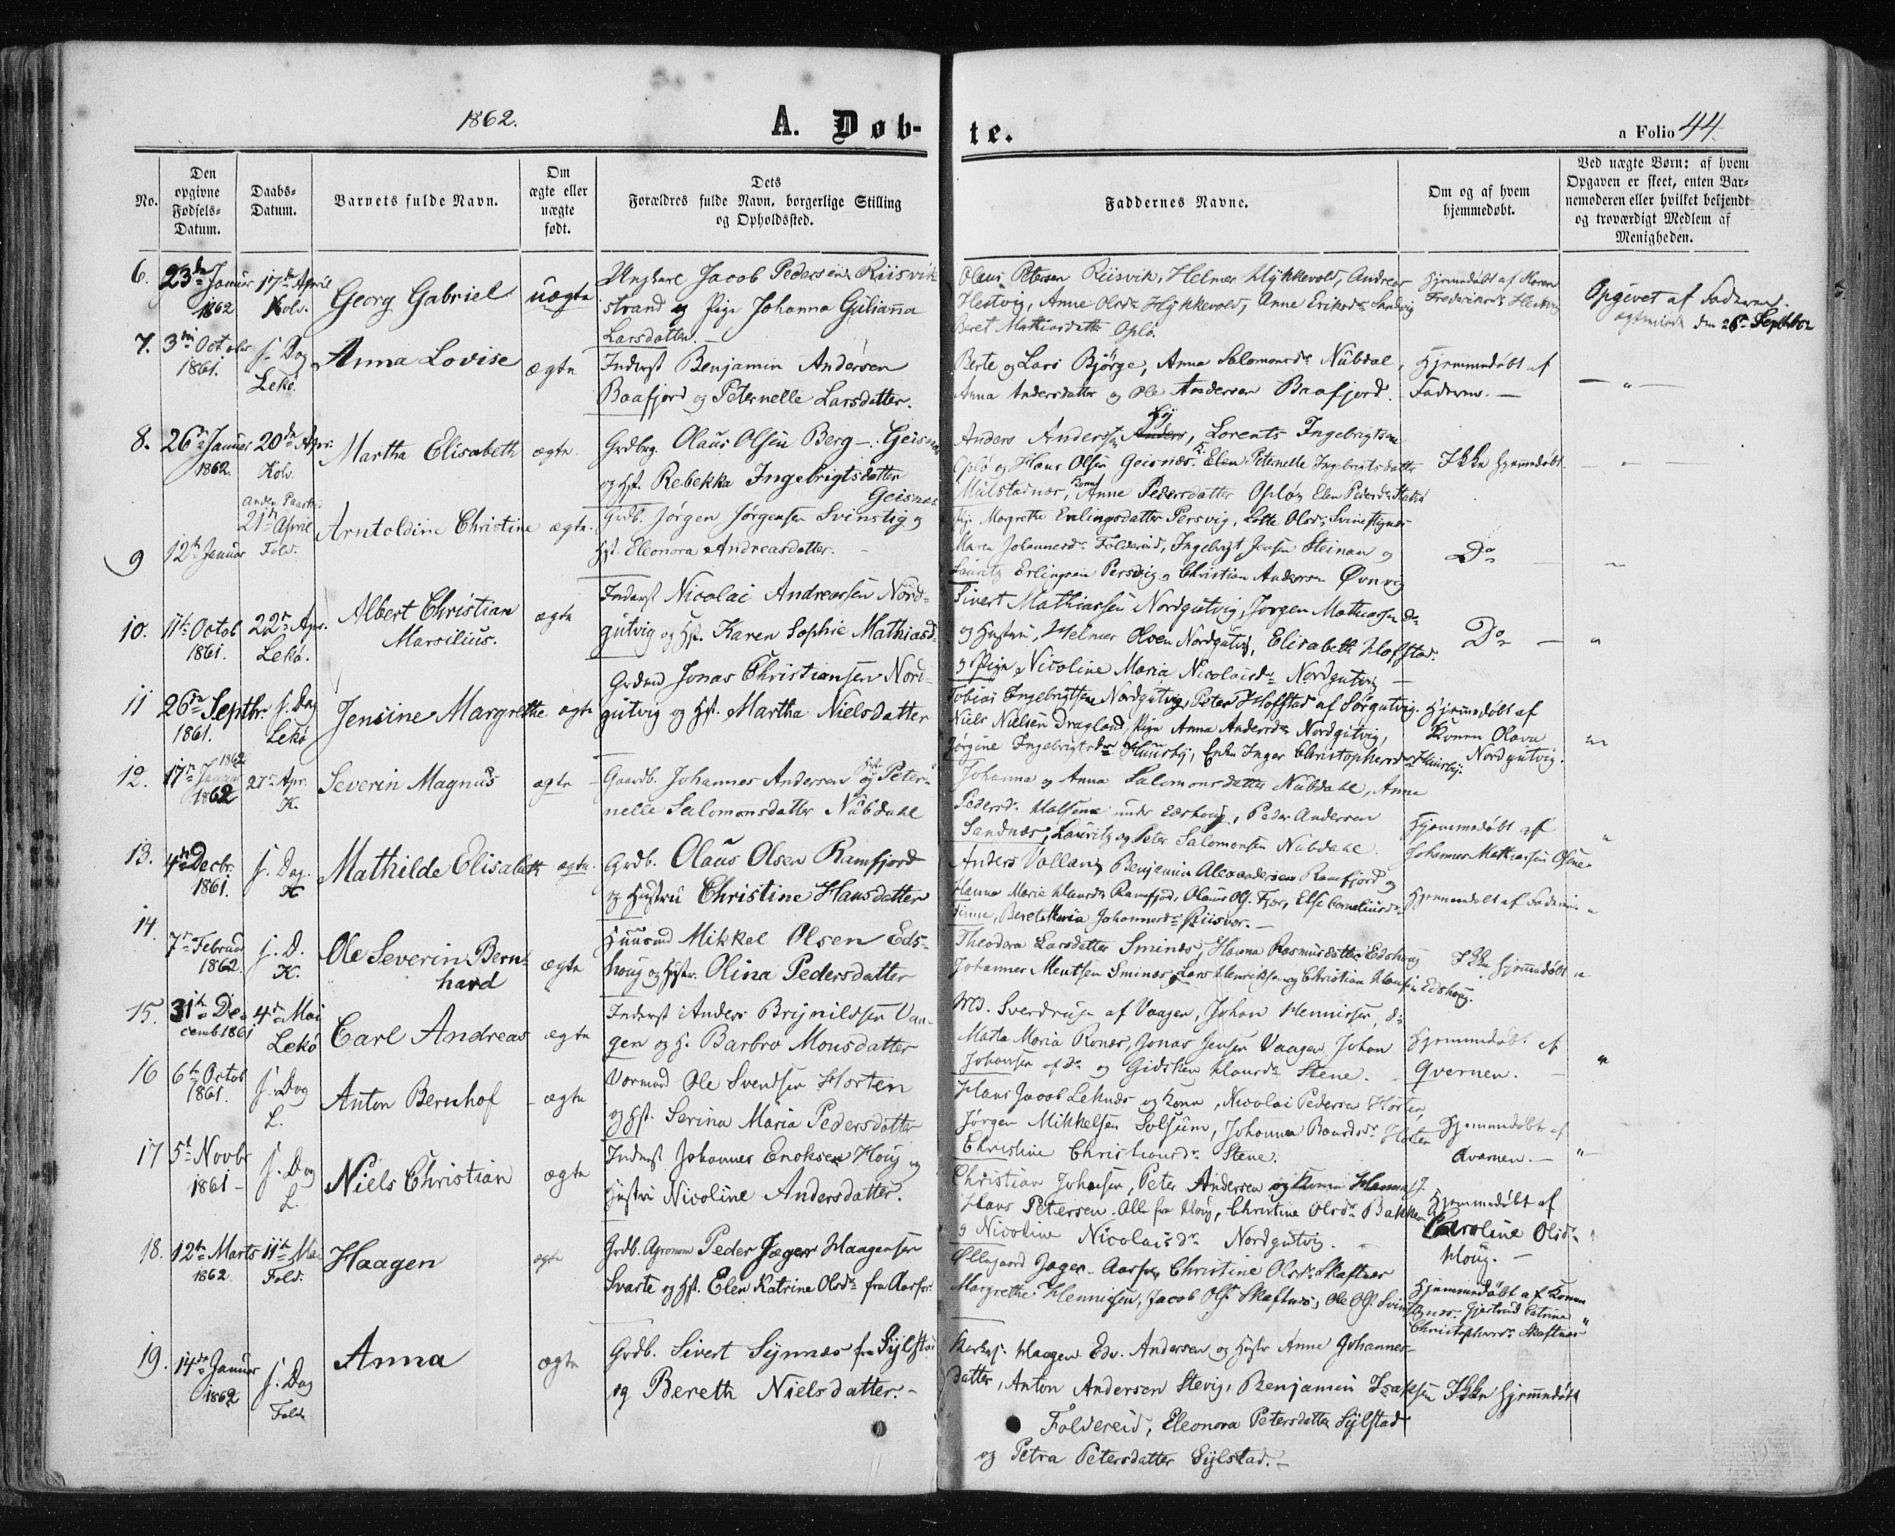 1862.
A. Døb-
te.
a Folio 44.
No.
Den
opgivne
Fødsels-
Datum.
Daabs-
Datum.
Barnets fulde Navn.
Om
ægte eller
uægte
født.
Dets
Forældres fulde Navn, borgerlige Stilling
og Opholdssted.
Faddernes Navne.
Om og af hvem
hjemmedøbt.
Ved uægte Børn: af hvem
Opgaven er skeet, enten Bar-
nemoderen eller hvilket bekjendt
og troværdigt Medlem af
Menigheden.
6.
23de Januar
1862
17de April
Kolv.
Georg Gabriel
uægte
Ungkarl Jacob Pedersen Riisvik
strand og Pige Johanna Guliana
Larsdatter.
Olaus Petersen Riisvik, Helmer Hykkevold, Andreas
Hestvig, Anne Olsdr Hykkevold, Anne Eriksdr Sandvig
Beret Mathiasdatter Oplø.
Hjemmedøbt af Karen
Frederiksdr Hestvig
Opgivet af Faderen.
den 26 Septbr
7.
3die Octobr
1861.
s. Dag
Lekø
Anna Lovise
ægte
Inderst Benjamin Andersen
Baafjord og Peternelle Larsdatter.
Berte og Lars Bjørge, Anna Salomonsdr Nubdal,
Anna Andersdatter og Ole Andersen Baafjord.
Hjemmedøbt af
Faderen. —
— " —
8.
26de Januar
1862.
20de Apr.
Kolv.
Martha Elisabeth
ægte.
Grdbrg. Olaus Olsen Berg —. Geisnæs
og Hst. Rebekka Ingebrigtsdatter
Geisnæs
Anders Anderssen Høj, Lorents Ingebrigtsen
Oplø og Hans Olsen Geisnæs. Elen Peternelle Ingebrigtsdatter
Mulstadnær, Kone Anne Pedersdatter Oplø, Elen Pedersdr
Ikke hjemmedøbt
— " —
9
12te Januar
anden Paaskedag
21de April
Fold.
Arntoldine Christine
ægte.
Grdb. Jørgen Jørgensen Svinstig og
Hst. Eleonora Andreasdatter. —
Pige Margrethe Erlingsdatter Persvig, Lotte Olsdr Svinestignes
Maren Johannesdr Foldereid, Ingebrigt Jensen Steinan og
Lauritz Erlingsen Persvig og Christian Andersen Øvnvig
Do —
"
10.
11te Octob
1861.
22de Apr.
Lekø.
Albert Christian
Marsilius.
ægte
Inderst Nicolai Andreassen Nord-
gutvig og Hst. Karen Sophie Mathiasdr
Sivert Mathiassen Nordgutvig, Jørgen Mathiassen do
og Hustru, Helmer Olsen Nordgutvig, Elisabeth Hofstad.
og Pige Nicoline Maria Nicolaisdr Nordgutvig —
Do —
"
11
26de Septbr.
1861.
s. Dag
Lekø
Jensine Margrethe
ægte
Grdmd Jonas Christiansen Nord-
gutvig og Hst. Martha Nielsdatter
Tobias Ingebrigtsen Nordgutvig, Peter Hofstad af Sørgutvig.
Niels Nielsen Dragland, Pige Anna Andersdr Nordgutvig,
Jørgine Ingebrigtsdr Huusby, Enke Inger Christophersdr Huusby.
Hjemmedøbt af
Konen Olava
Nordgutvig.
"
12.
17de Januar
1862
27de Apr.
K.
Severin Magnus
ægte
Gaardb. Johannes Andersen og Peter-
nelle Salomonsdatter Nubdahl
Johanna og Anna Salomonsdatter Nubdahl, Anne
Pedersdr Halsene under Edshoug, Peder Andersen
Sandnæs, Lauritz og Peter Salomonsen Nubdahl.
Hjemmedøbt af
Johannes Mathiassen
"
13.
4de Decbr.
1861.
s. Dag.
K
Mathilde Elisabeth
ægte.
Grdb. Olaus Olsen Ramfjord
og Hustru Christine Hansdatter
Anders Vollan, Benjamin Alexandersen Ramfjord og
Hanna Marie Hansdr Ramfjord, Olaus Ols. Fjær, Else Corneliusdr
Beret Maria Johannesdr Riisvær. —
Hjemmedøbt af Faderen. "
14.
7de Februar
1862.
s. D.
K.
Ole Severin Bern-
hard
ægte
Huusmd Mikkel Olsen Eds-
houg og Hustr. Olina Pedersdatter
Theodora Larsdatter Sminæs, Hanna Rasmusdatter Edshoug
Johannes Mentsen Sminæs, Lars Henriksen og Christian Hansen Edshoug.
Ikke hjemmedøbt "
15.
31te De-
cemb 1861
4de Mai
Lekø
Carl Andreas
ægte
Inderst Anders Brynildsen Vaa-
gen og H. Barbro Monsdatter
Md. Sverdrup af Vaagen, Johan Hennissen, do
Marta Maria Ronæs, Jonas Jensen Vaagen, Johan
Johansen af do og Gidsken Hansdr Stene.
Hjemmedøbt af
Qvernen. —
"
16
6te Octob
1861.
s. Dag
L.
Anton Bernhof
ægte
Vaormand Ole Svendsen Horten
og Hst. Serina Maria Pedersdatter
Hans Jacob Leknæs og Kone, Nicolai Pedersen Horten,
Jørgen Mikkelsen Solsem, Johanna Baardsdr Holten
Christine Christiansdr Stene.
Hjemmedøbt af
Qvernen. —
"
17
5te Novbr
1861 —
s. Dag
L.
Niels Christian
ægte
Inderst Johannes Enoksen Houg og
Hustru Nicoline Andersdatter.
Christian Johnsen, Peter Andersen og Konen Hanna J.
Hans Petersen. Alle fra Houg, Christine Olsdr Bakken
og Nicoline Nicolaisdr Nordgutvig. —
Hjemmedøbt af
Caroline Olsdr
Houg. —
18.
12te Marts
1862.
11te Mai
Fold.
Haagen
ægte
Grdb. Agronom Peder Jæger Haagensen
Svarte og Hst. Elen Katrine Olsdr fra Aarfor.
Øllegaard Jæger Aarfor, Christine Olsdr Skaftnæs
Margrethe Hennissen, Jacob Ols. Skaftnæs, Ole Ols. Svinstignæs.
Hjemmedøbt af Konen
Gjertrud Catrine
Christophersdr Skaftnæs
"
19.
14de Januar
1862
s. Dag
Fold.
Anna
ægte
Grdb. Sivert Synnæs fra Sylstad
og Bereth Nielsdatter. —
Kirkes. Haagen Edv. Andersen og Hustr Anne Johannes-
datter, Anton Andersen Stevig, Benjamin Isaksen
Foldereid, Eleonora Petersdatter Sylstad
og Petra Petersdatter Sylstad. —
Ikke hjemmedøbt